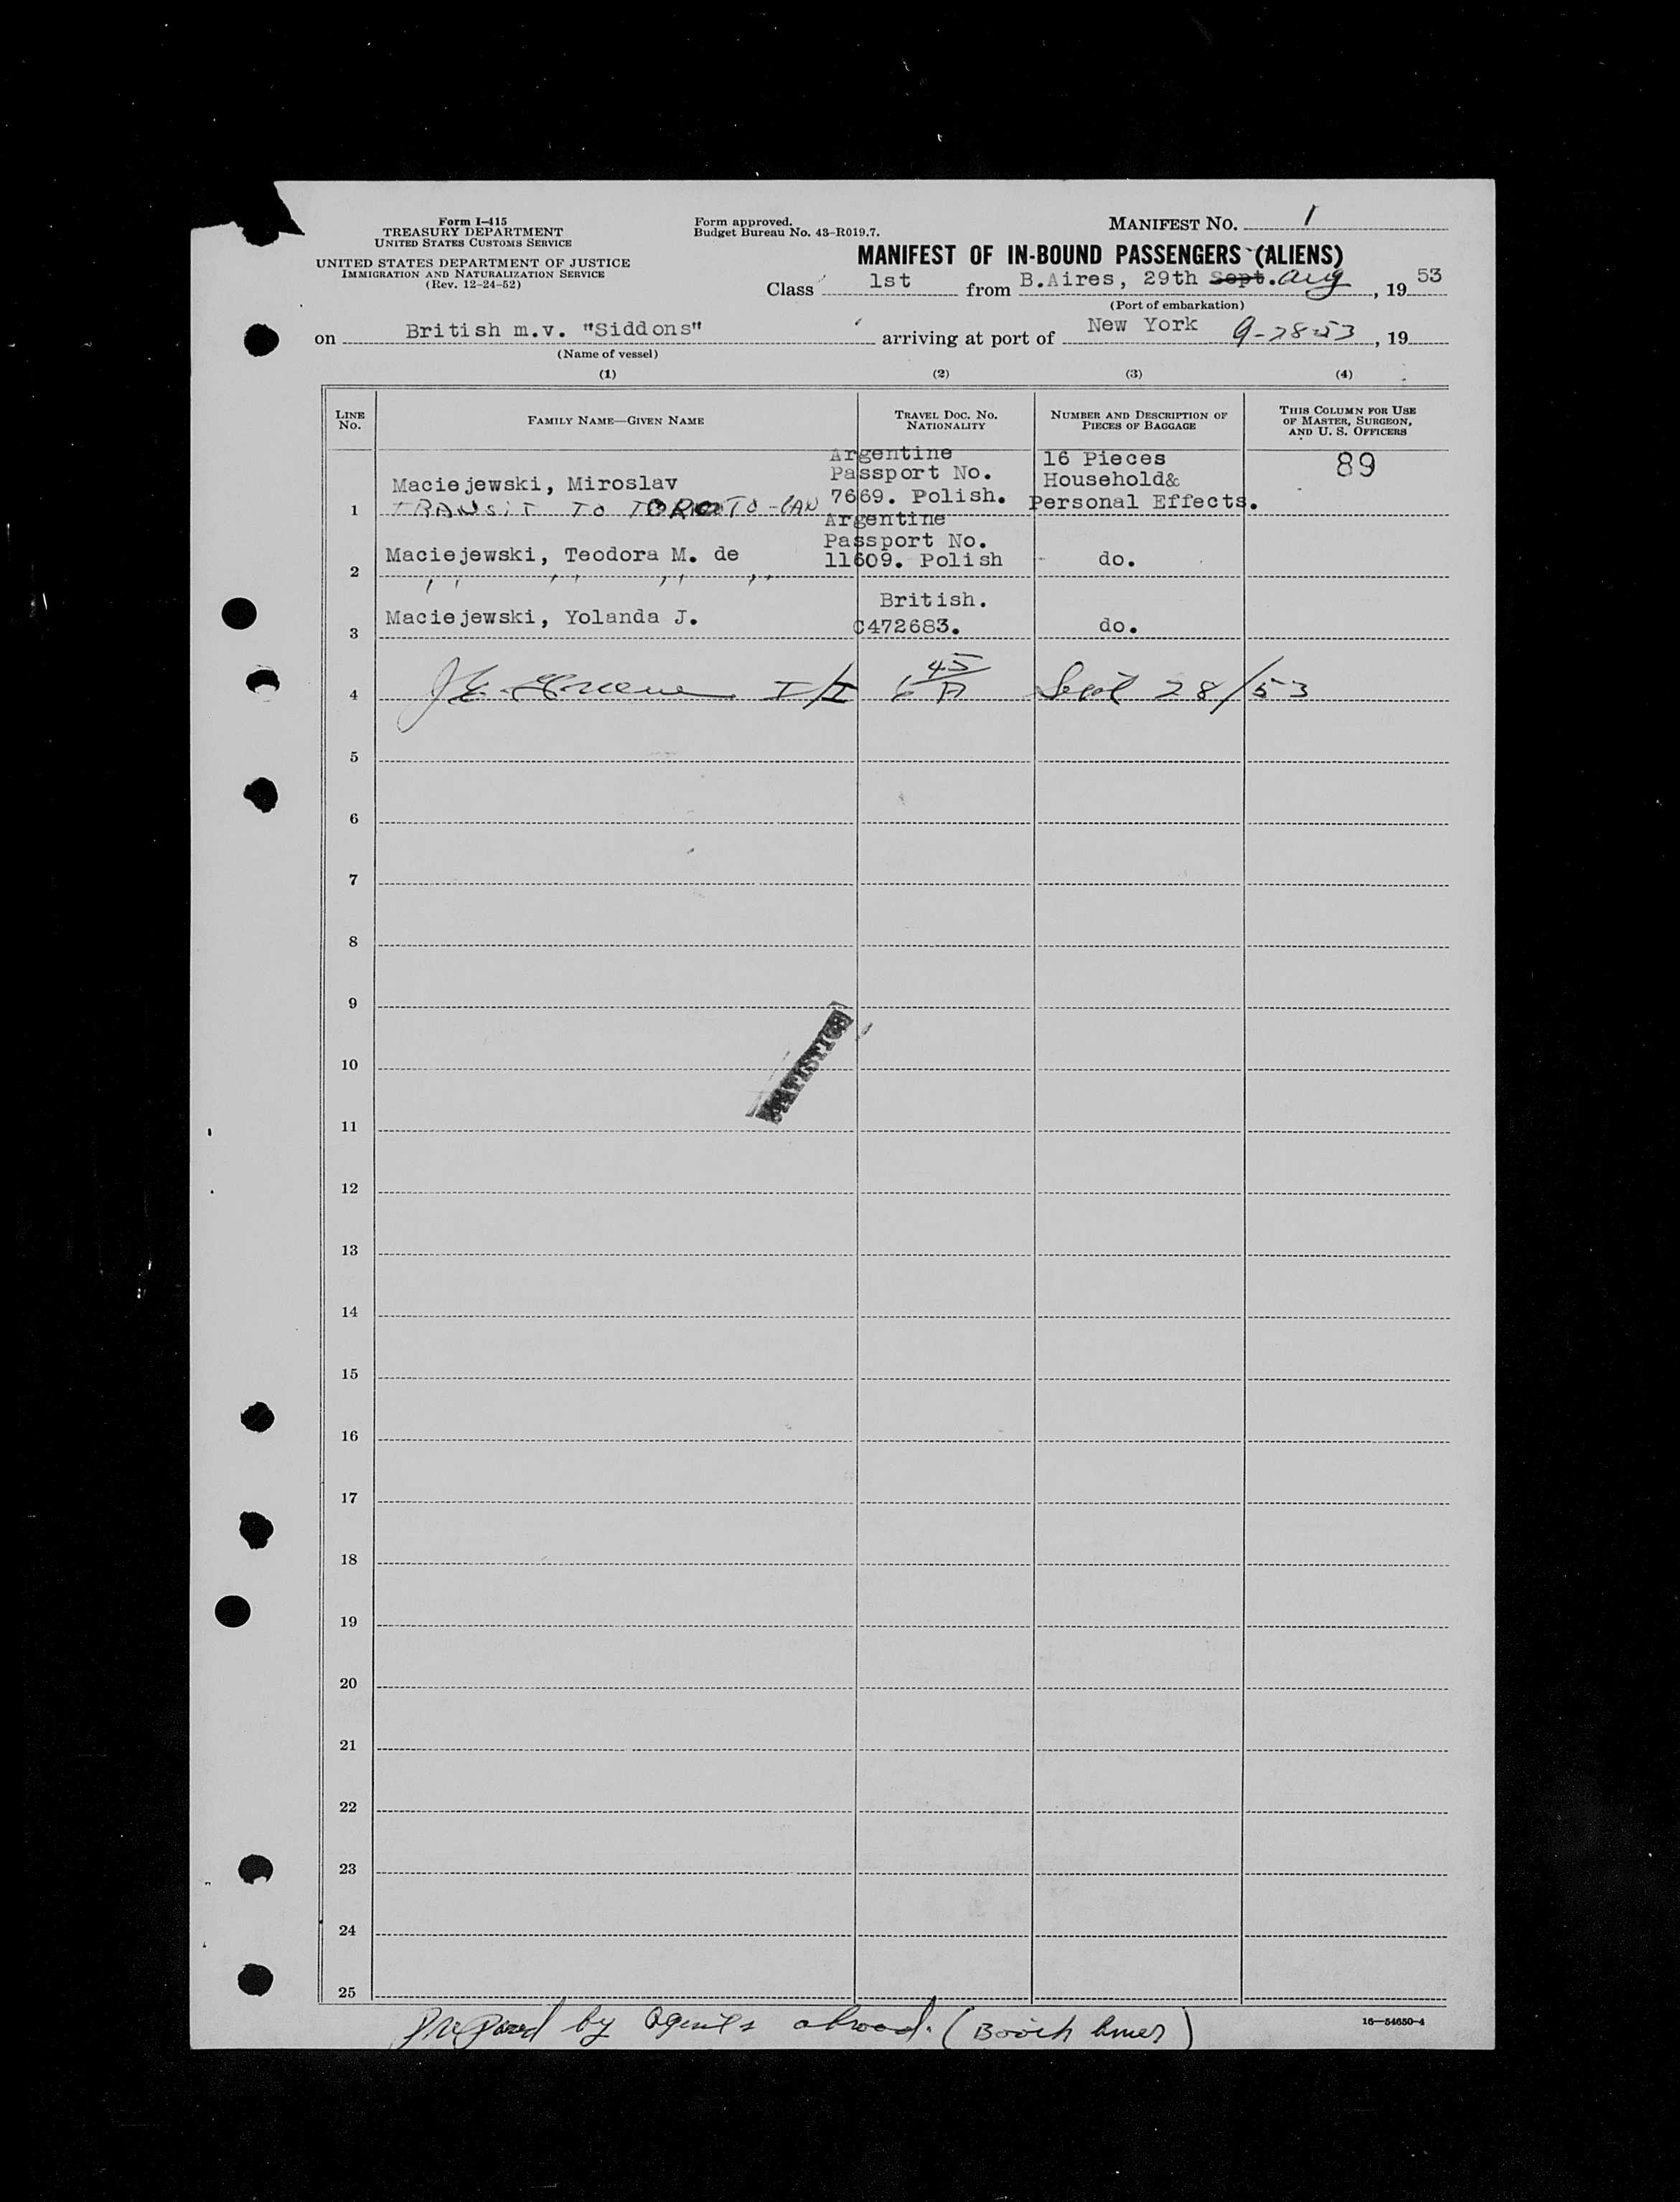 Form I-415
TREASURY DEPARTMENT
UNITED STATES CUSTOMS SERVICE
UNITED STATES DEPARTMENT OF JUSTICE
IMMIGRATION AND NATURALIZATION SERVICE
(Rev. 12-24-52)
Form approved.
Budget Bureau No. 43-R019.7.
MANIFEST NO. 1
MANIFEST OF IN-BOUND PASSENGERS (ALIENS)
Class 1st from B.Aires, 29th Sept. Aug, 19 53
(Port of embarkation)
on British m.v. "Siddons" arriving at port of New York 9-28-53, 19
(Name of vessel)
(1) (2) (3) (4)
LINE NO. FAMILY NAME—GIVEN NAME TRAVEL DOC. NO. NATIONALITY NUMBER AND DESCRIPTION OF PIECES OF BAGGAGE THIS COLUMN FOR USE OF MASTER, SURGEON, AND U. S. OFFICERS
1 Maciejewski, Miroslav Argentine Passport No. 7669. Polish. 16 Pieces Household& Personal Effects. 89
TRANSIT TO TORONTO-CAN
2 Maciejewski, Teodora M. de Argentine Passport No. 11609. Polish do.
,, ,, ,, ,,
3 Maciejewski, Yolanda J. British. C472683. do.
4 I/I 6 45/A Sept 28/53
5
6
7
8
9
10
11
12
13
14
15
16
17
18
19
20
21
22
23
24
25
prepared by agents abroad. (Booth
16—54650-4